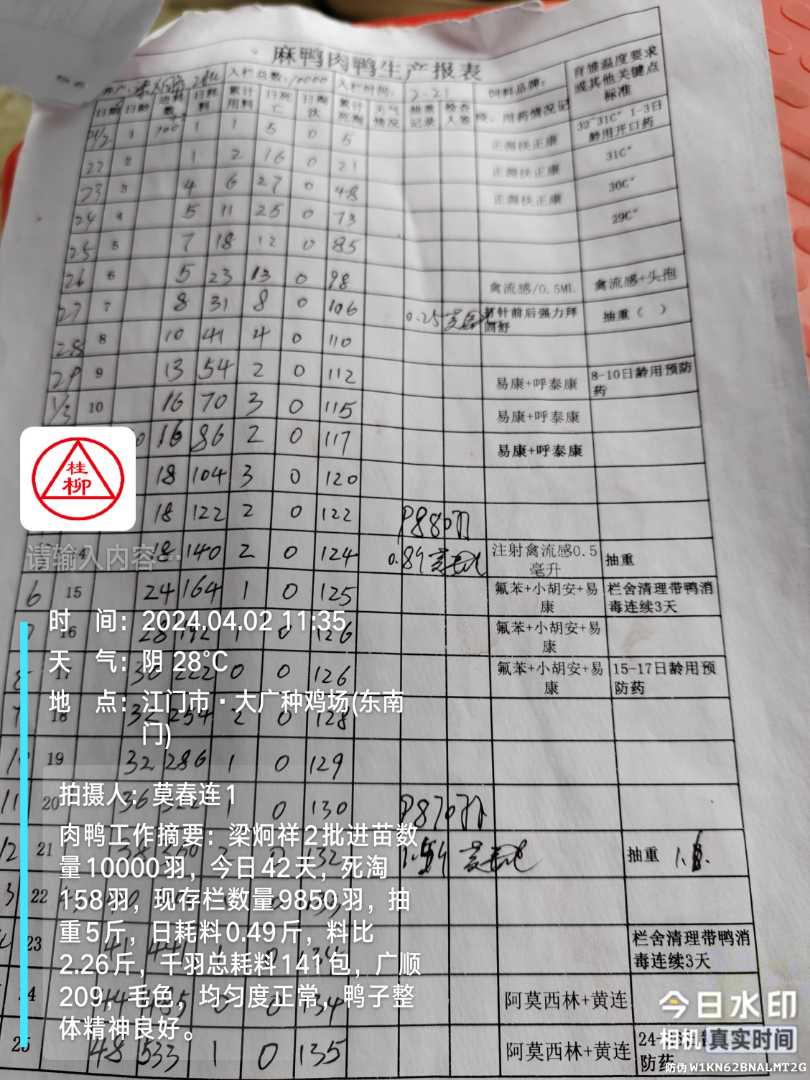 麻鸭肉鸭生产报表
入栏总数:10000 入栏时间:2-21 饲料品牌: 育雏温度要求或其他关键点标准
日期 日龄 日耗料 累计用料 日死亡 日淘汰 累计死淘 天气情况 抽重记录 检查人签 用药情况记
1 1 1 5 0 5 正湖枝正康 32-31C° 1-3日龄用开口药
22 2 1 2 16 0 21 正湖枝正康 31C°
23 3 4 6 27 0 48 正湖枝正康 30C°
24 4 5 11 25 0 73 29C°
25 5 7 18 12 0 85
26 6 5 23 13 0 98 禽流感/0.5ML 禽流感+头孢
27 7 8 31 8 0 106 0.25 打针前后强力拜固舒 抽重( )
28 8 10 41 4 0 110
29 9 13 54 2 0 112 易康+呼泰康 8-10日龄用预防药
1/3 10 16 70 3 0 115 易康+呼泰康
16 86 2 0 117 易康+呼泰康
18 104 3 0 120
18 122 2 0 122 P880羽
4 18 140 2 0 124 0.89 注射禽流感0.5毫升 抽重
6 15 24 164 1 0 125 氟苯+小胡安+易康 栏舍清理带鸭消毒连续3天
7 16 28 192 1 0 126 氟苯+小胡安+易康
8 17 30 222 0 0 126 氟苯+小胡安+易康 15-17日龄用预防药
9 18 32 254 2 0 128
10 19 32 286 1 0 129
11 20 36 322 1 0 130 P870羽
12 21 抽重
22
23 栏舍清理带鸭消毒连续3天
24 阿莫西林+黄连
25 48 533 1 0 135 阿莫西林+黄连 防药
桂柳
请输入内容...
时 间:2024.04.02 11:35
天 气:阴 28℃
地 点:江门市·大广种鸡场(东南门)
拍摄人:莫春连1
肉鸭工作摘要:梁炯祥2批进苗数
量10000羽,今日42天,死淘
158羽,现存栏数量9850羽,抽
重5斤,日耗料0.49斤,料比
2.26斤,千羽总耗料141包,广顺
209,毛色,均匀度正常,鸭子整
体精神良好。
今日水印
相机 真实时间
防伪W1KN62BNALMT2G